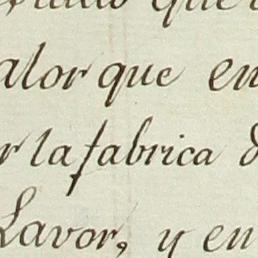 que
alor que en
r la fabrica
Lavor, y en